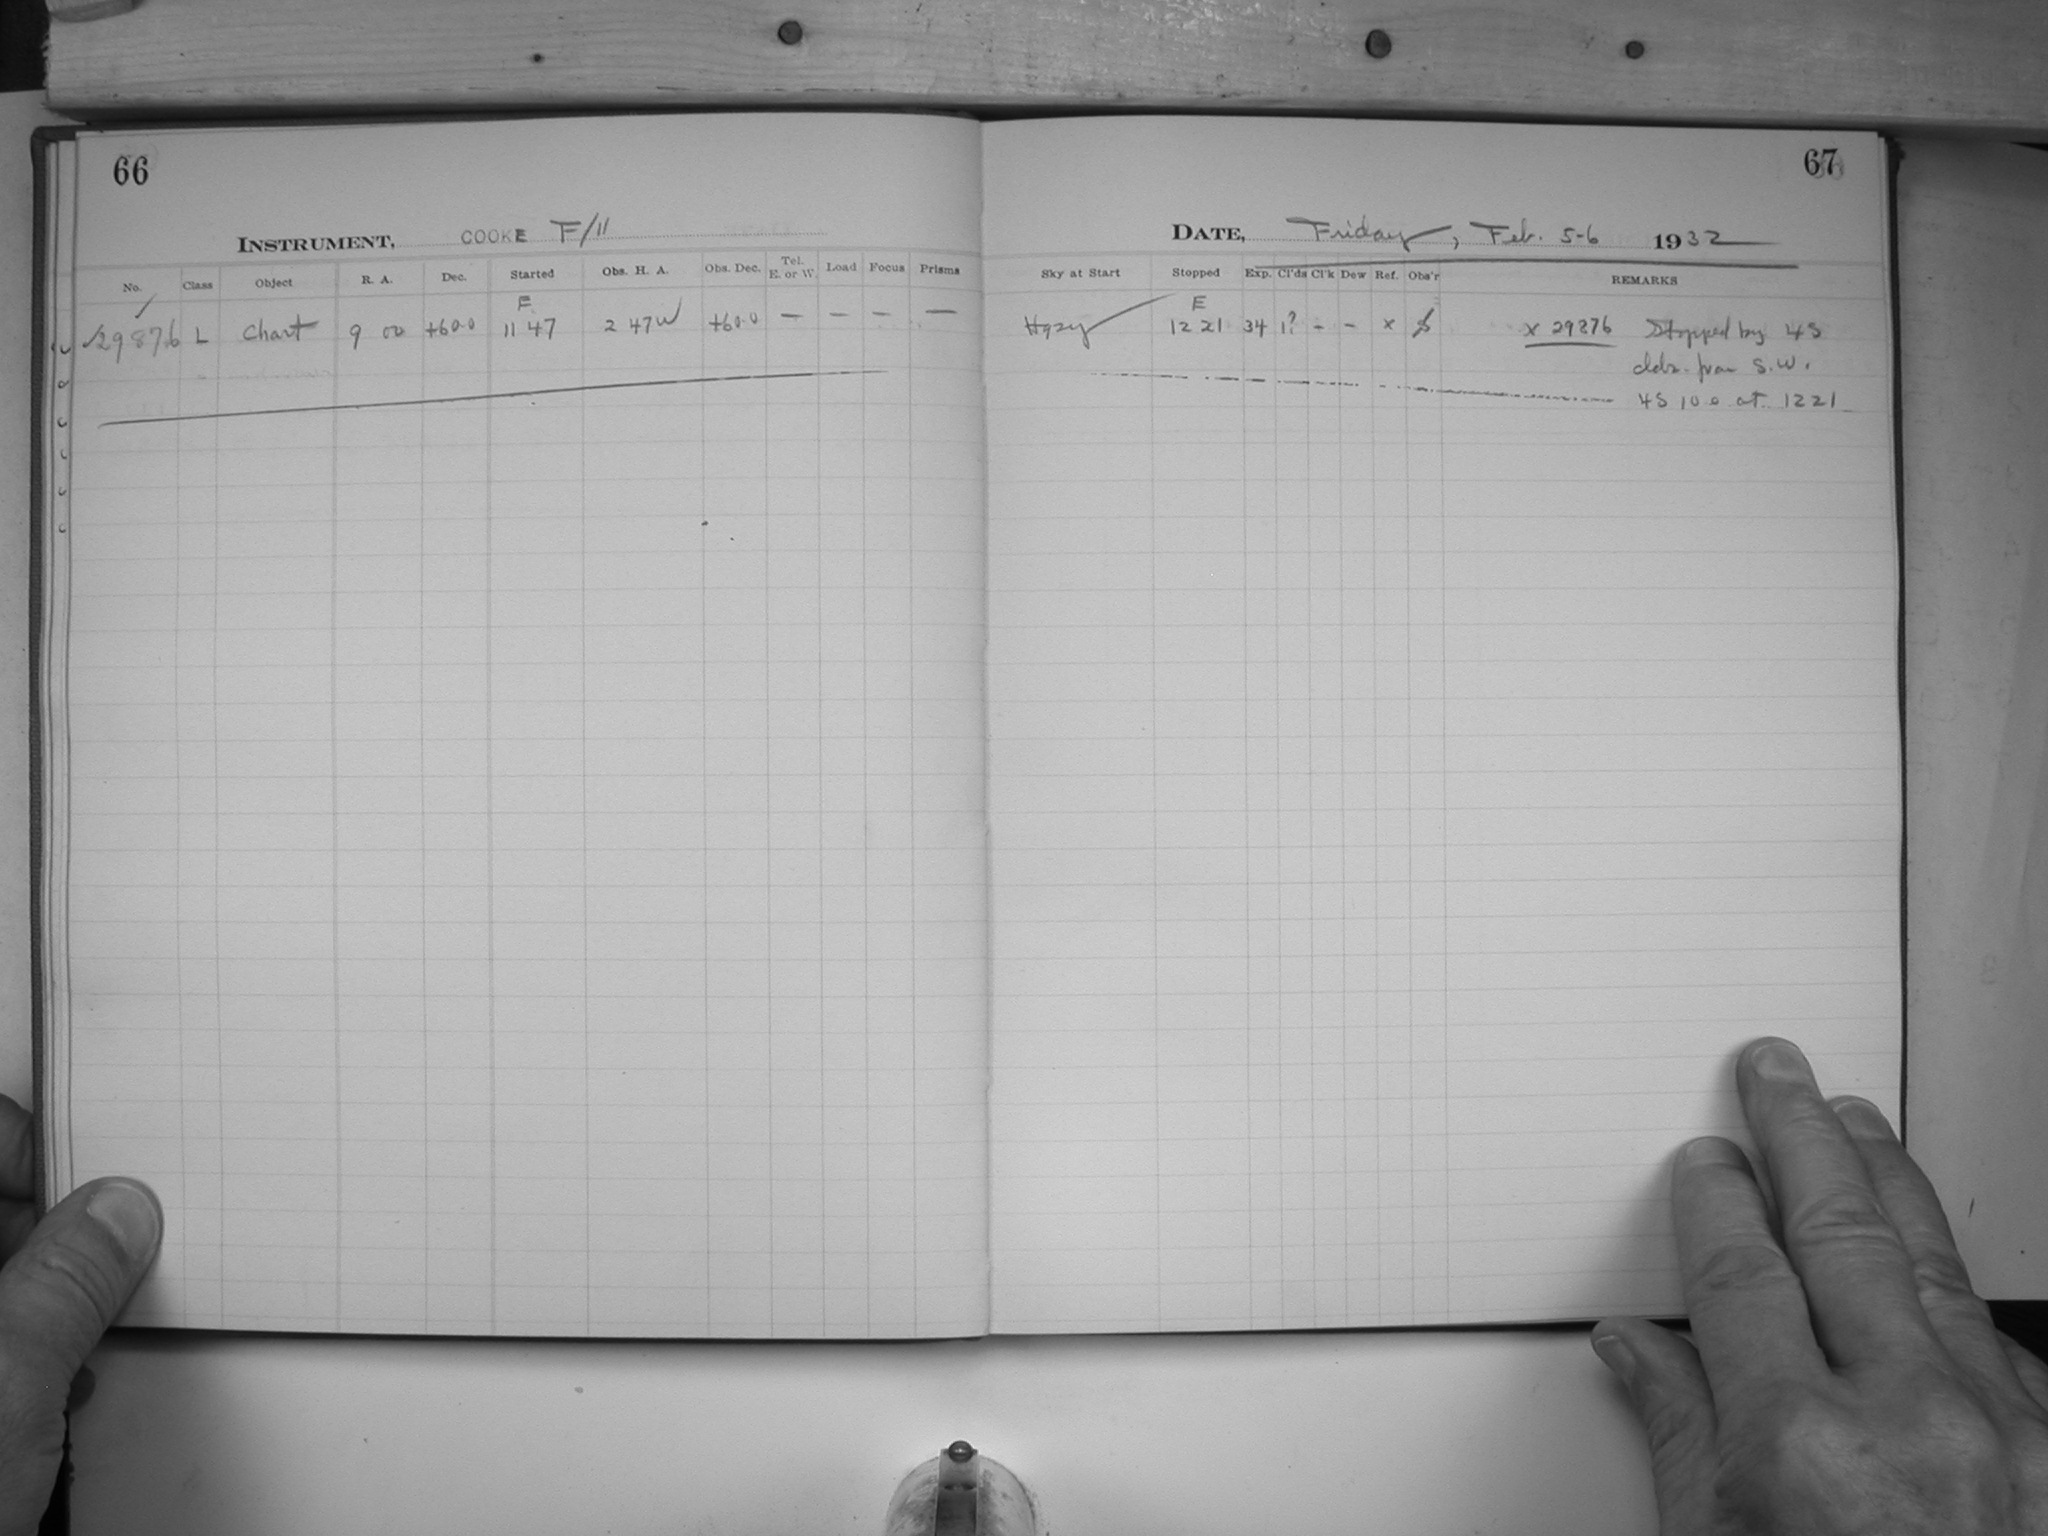 66
INSTRUMENT, COOKE F/11
No. Class Object R. A. Dec. Started Obs. H. A. Obs. Dec. Tel. E. or W. Load Focus Prisms
E
29876 L Chart 9 00 +60.0 11 47 2 47W +60.0 — — — —
67
DATE, Friday, Feb. 5-6 1932
Sky at Start Stopped Exp. Cl'ds Cl'k Dew Ref. Obs'r REMARKS
E
Hazy 12 21 34 1? - - x x 29876 Stopped by
from S.W.
at 12 21